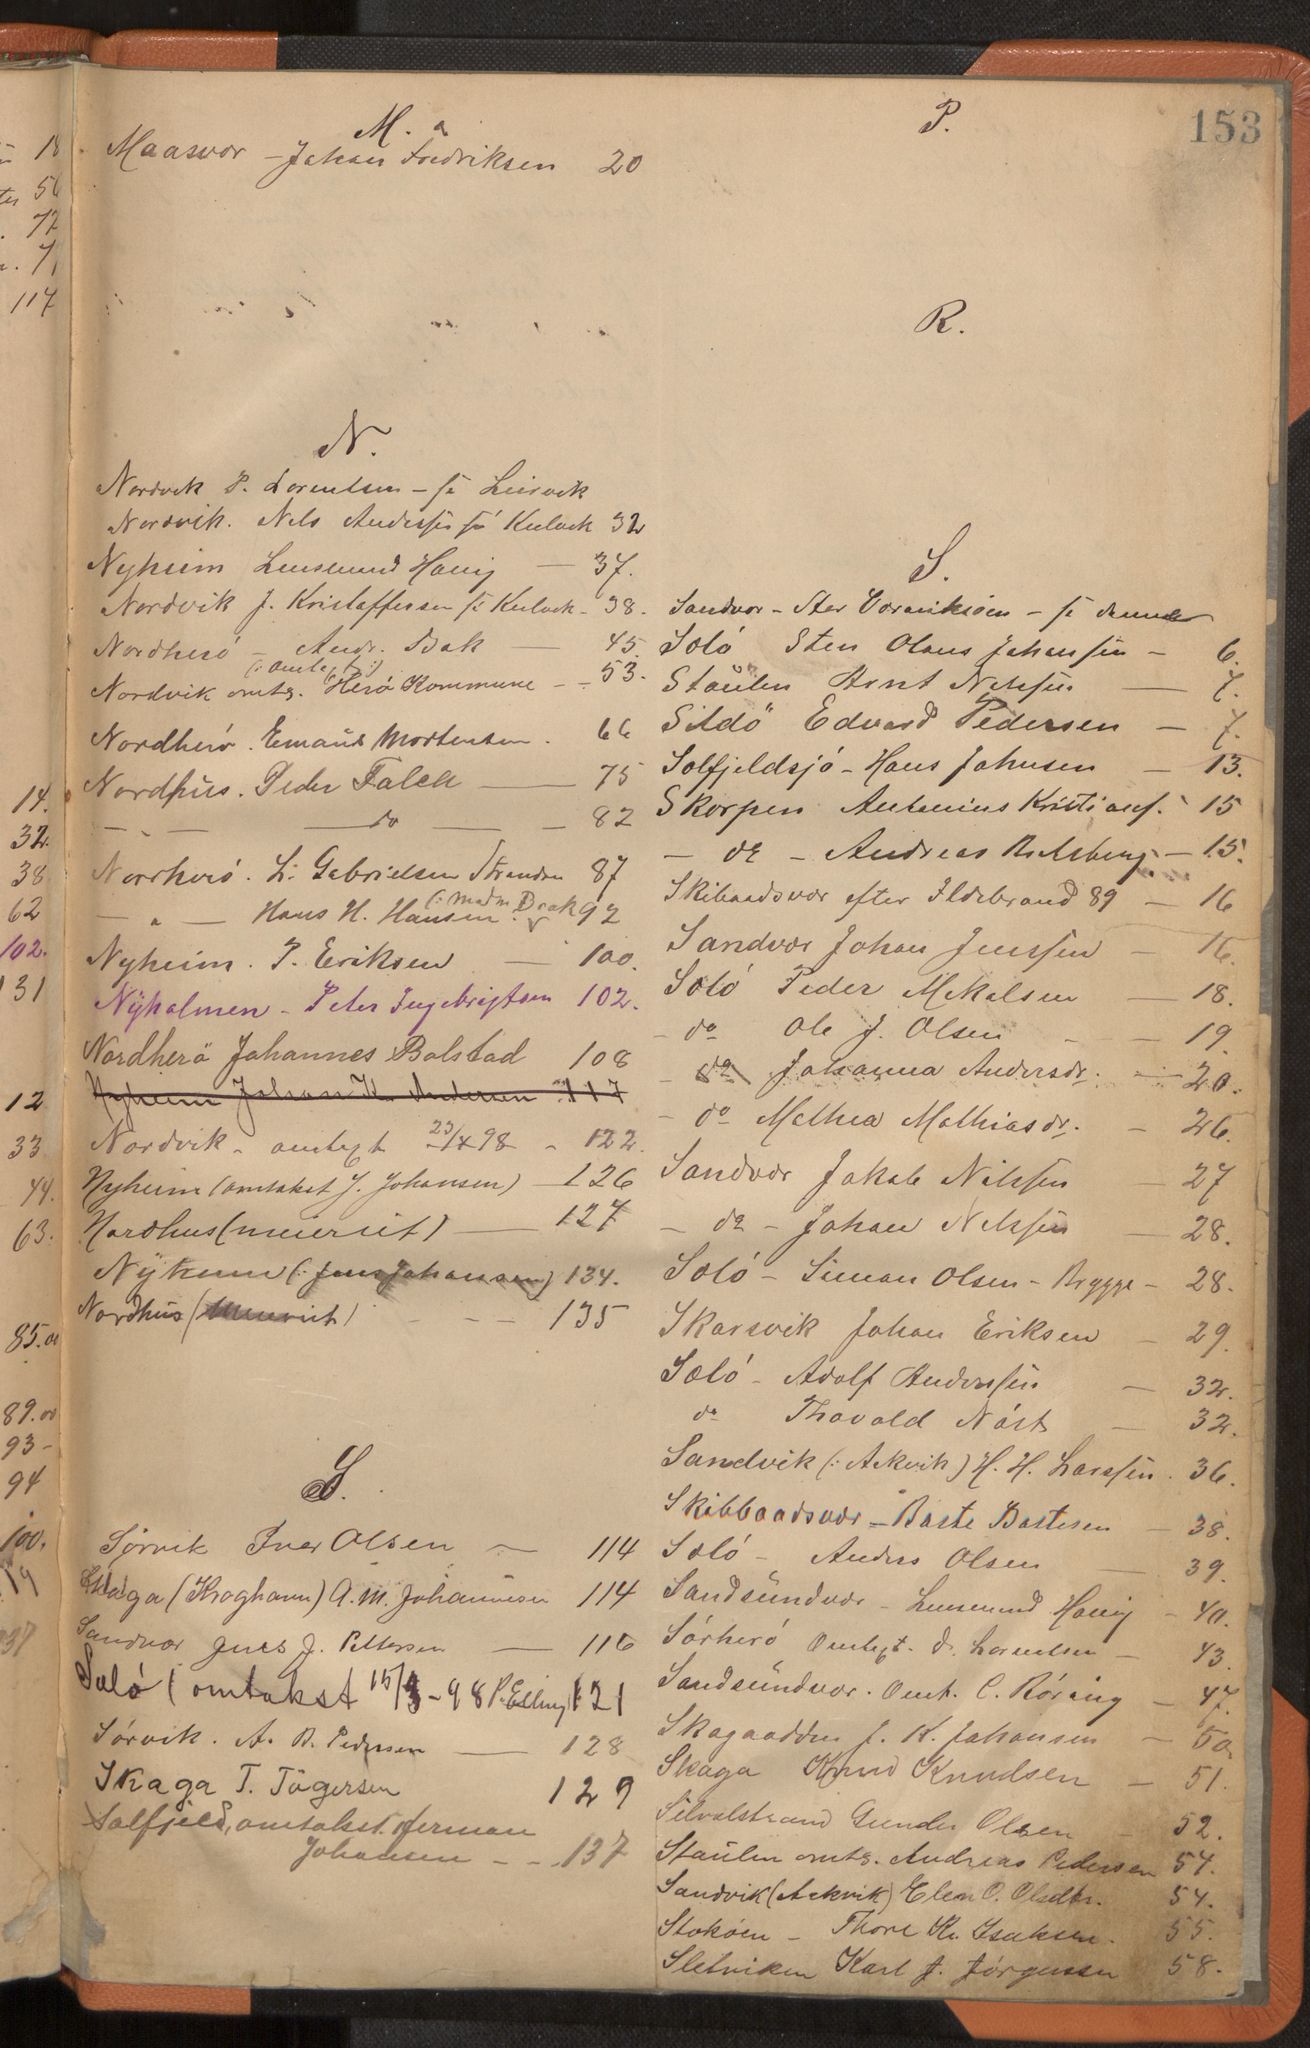 153
M.
Maasvær - Johan Fredriksen 20
N.
Nordvik P. Lorentsen - se Leirvik
Nordvik. Nels Anderssen se Kulvik 32
Nyheim Lensmand Havig - 37.
Nordvik J. Kristoffersen se Kulvik - 38.
Nordherö - Andr. Bak - 45.
(: omtaxt :)
Nordvik omtx. Herö Kommune - - 53.
Nordherö. Emaus Mortensen. 66
Nordhus. Peder Falch - 75
- - do - - 82
Nordherö. L. Gabrielsen Stranden 87
- " - Hans H. Hansen. (: Madm Brak 92
Nyheim. P. Eriksen - 100.
Nyholmen - Peter Ingebrigtsen 102.
Nordherö Johannes Bolstad 108
Nyheim Johan K. Andersen 117
Nordvik - omtaxt 23/4 98 - 122
Nyheim (omtakst J. Johansen) - 126
Nordhus (meieriet) - 127
Nyheim (: Jens Johansen) 134.
Nordhus (Meieriet) - - - 135
S.
Sørvik Iver Olsen - 114
Skaga (Kroghavn) A. M. Johannesen 114
Sandvær Jens J. Pettersen - 116
Solö (omtakst 15/3 - 98 P. Elling 121
Sörvik. A. B. Pedersen - 128
Skaga T. Tögersen 129
Solfjeld, omtakst. Herman
Johansen - - 137
P.
R.
S.
Sandvær - Sten - se
Solö Sten Olaus Johansen - 6.
Staulen Arnt Nelssen - 7.
Sildö Edvard Pedersen - 7.
Solfjeldsjö - Hans Johnsen - 13.
Skorpen Antonius Kristians. - 15
- do - Andreas - 15.
Skibaadsvær efter Ildebrand 89 - 16
Sandvær Johan Jenssen - 16.
Solö Peder Mikalsen - 18.
- do Ole J. Olsen - - 19.
- do Johanna Andersdr. - 20.
- do Mathea Mathiasdr. - 26.
Sandvær Jakob Nilssen - 27
- do - Johan Nelssen - 28.
Solö - Simon Olsen - Brygge - 28.
Skarsvik Johan Eriksen - 29.
Solö - Adolf Anderssen - 32.
do Thovald Nöst - 32.
Sandvik (: Aakvik) H. H. Larssen. 36.
Skibbaadsvær - Baste Bastesen - 38.
Solö - Anders Olsen - 39.
Sandsundvær - Lensmand Havig - 40.
Sörherö Omtaxt. D. Lorentsen - 43.
Sandsundvær. Omt. C. Röring - 47.
Skagaodden J. K. Johansen - 50.
Skaga Knud Knudsen - 51.
Silvalstrand Gunder Olsen - 52.
Staulen omtx. Andreas Pedersen 54.
Sandvik (Aakvik) Elen O. Olsdtr. 54.
Stoköen - Thore Kr. Isaksen. 55.
Sletviken Karl J. Jörgensen 58.
18
56
72
71
117
14.
32.
38
62
102.
131
12
33
44.
63.
85.
89.
93 -
94
100.
19
37